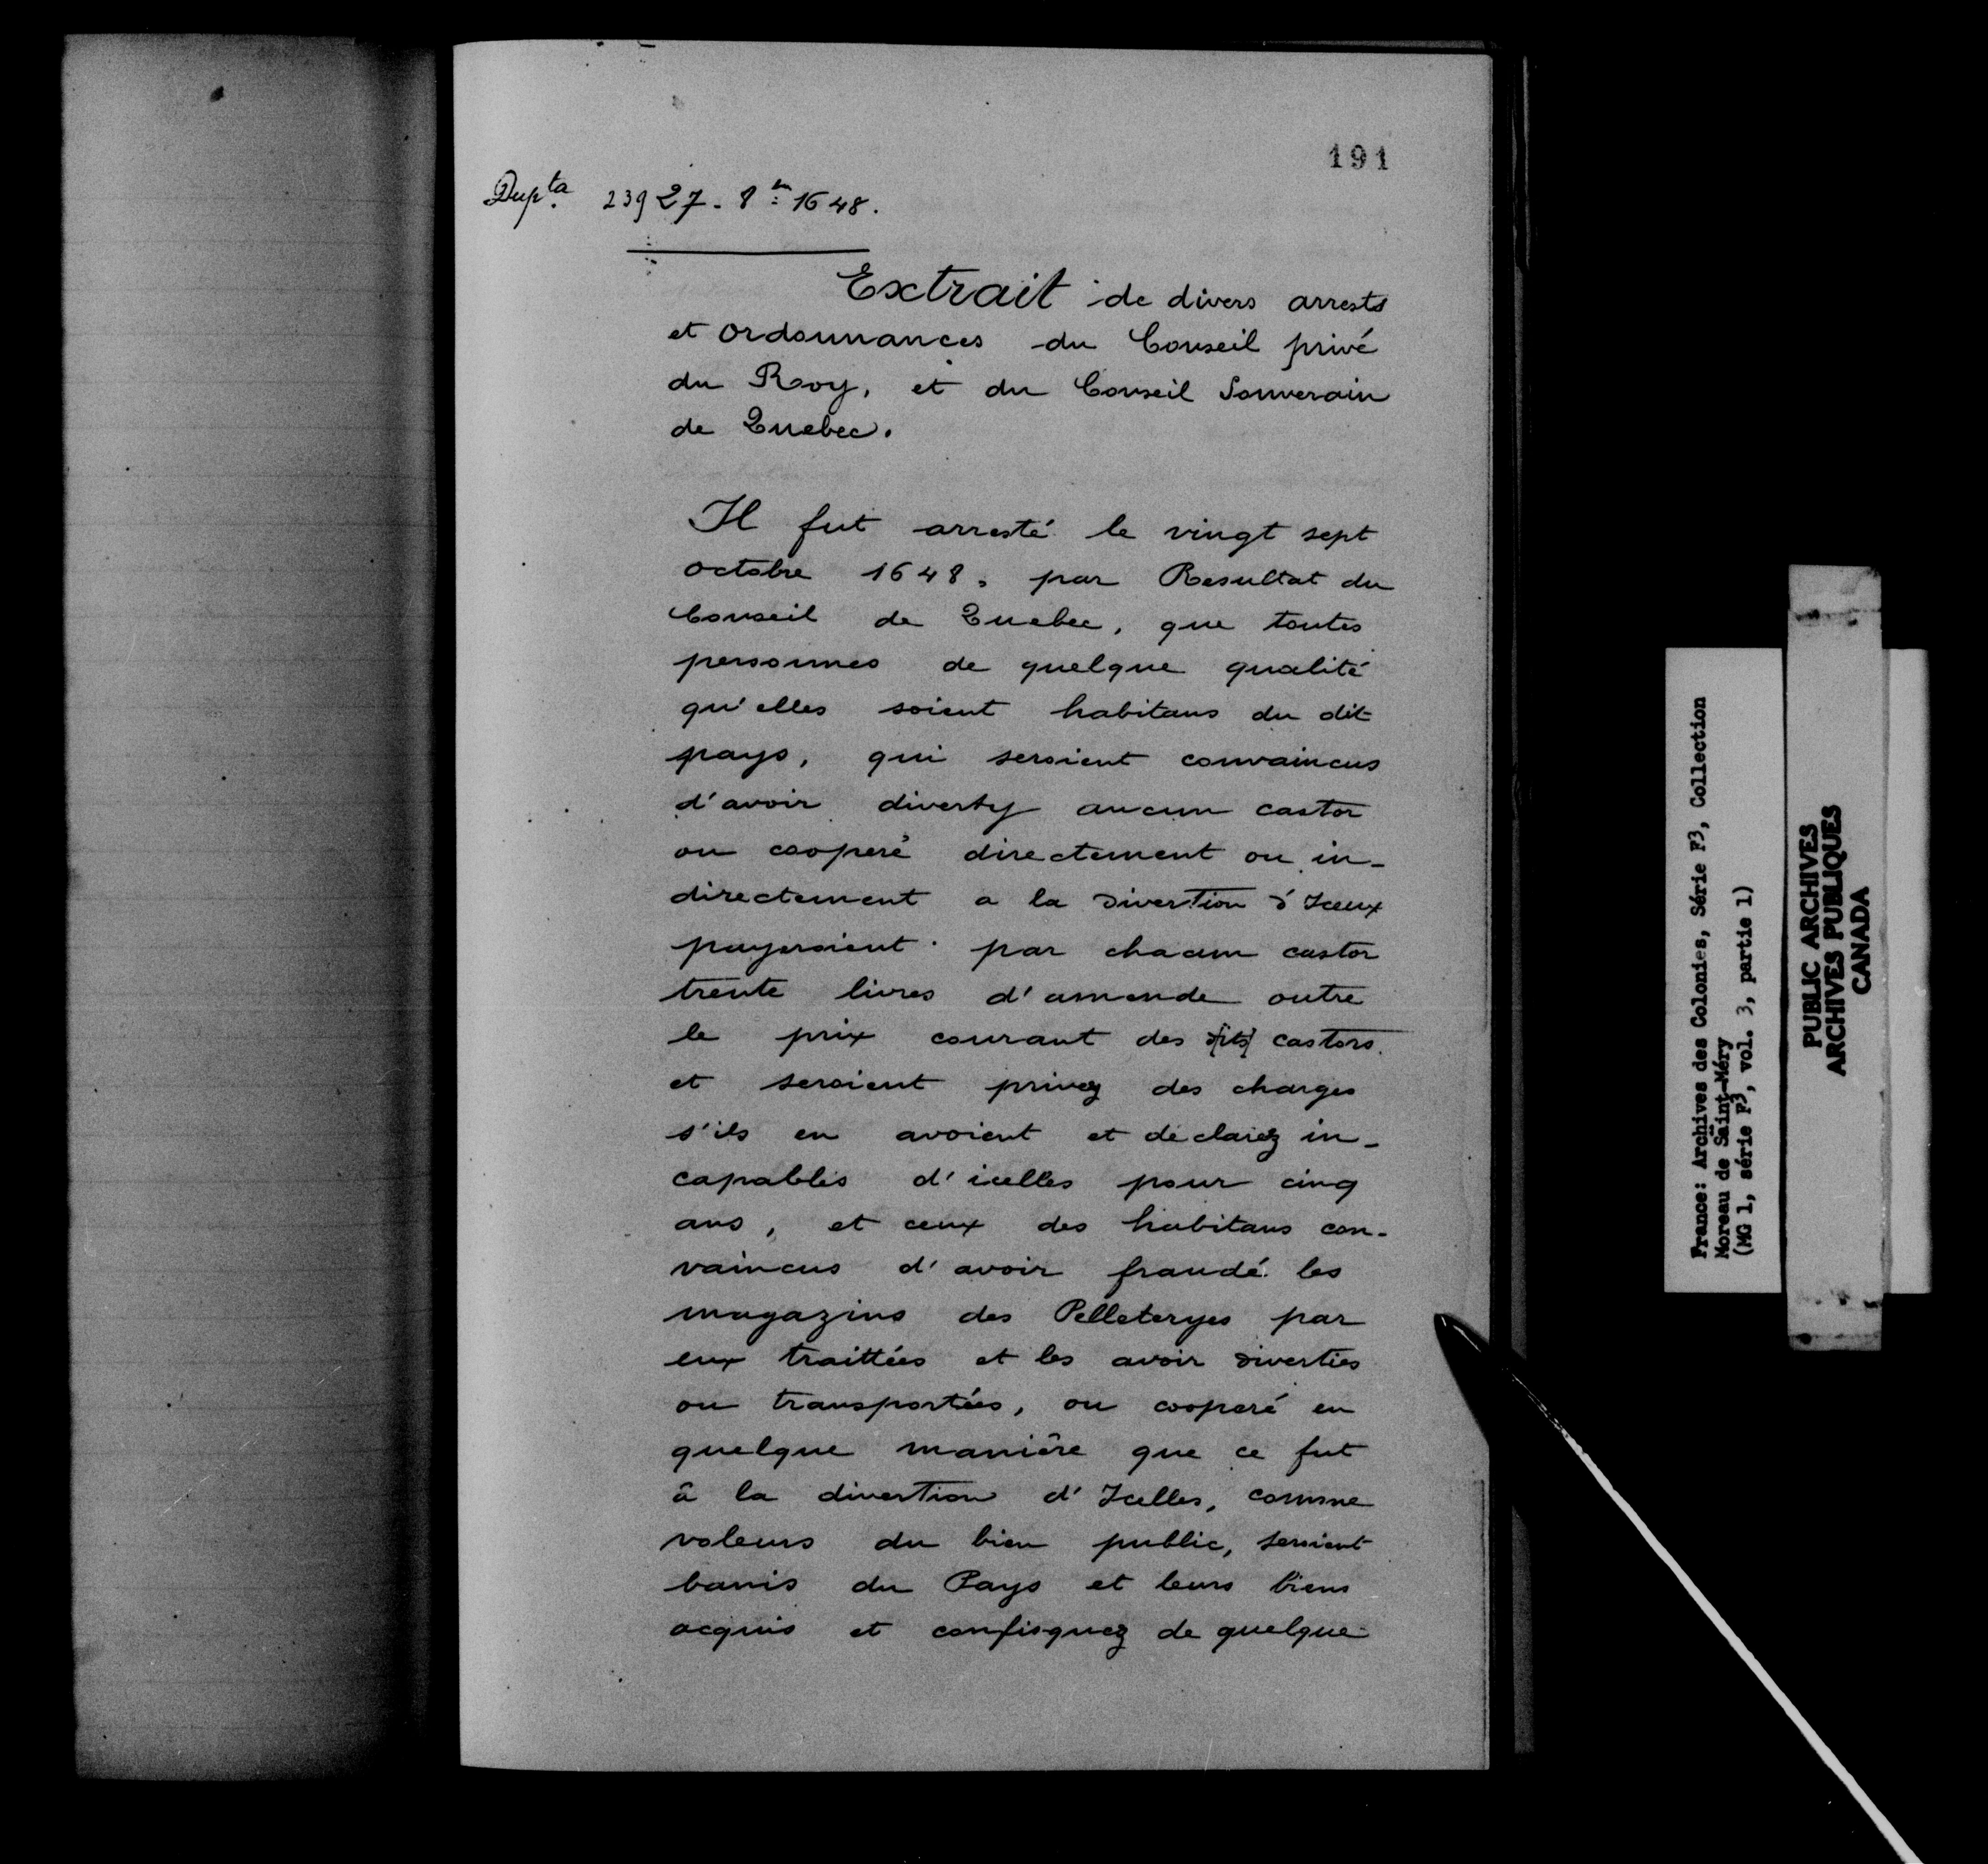 191
Dupta. 239 27. 8bre 1648.
Extrait de divers arrests
et ordonnances du Conseil privé
du Roy, et du Conseil Souverain
de Quebec.
Il fut arresté le vingt sept
octobre 1648, par Resultat du
Conseil de Quebec, que toutes
personnes de quelque qualité
qu'elles soient habitans du dit
pays, qui seroient convaincus
d'avoir diverty aucun castor
ou cooperé directement ou in-
directement a la divertion d'Iceux
payeroient par chacun castor
trente livres d'amende outre
le prix courant des dits castors
et seroient privez des charges
s'ils en avoient et déclarez in-
capables d'icelles pour cinq
ans, et ceux des habitans con-
vaincus d'avoir fraudé les
magazins des Pelleteryes par
eux traittées et les avoir diverties
ou transportées, ou cooperé en
quelque manière que ce fut
à la divertion d'Icelles, comme
voleurs du bien public, seroient
banis du Pays et leurs biens
acquis et confisquez de quelque
France: Archives des Colonies, Série F3, Collection
Moreau de Saint-Méry
(MG 1, série F3, vol. 3, partie 1)
PUBLIC ARCHIVES
ARCHIVES PUBLIQUES
CANADA